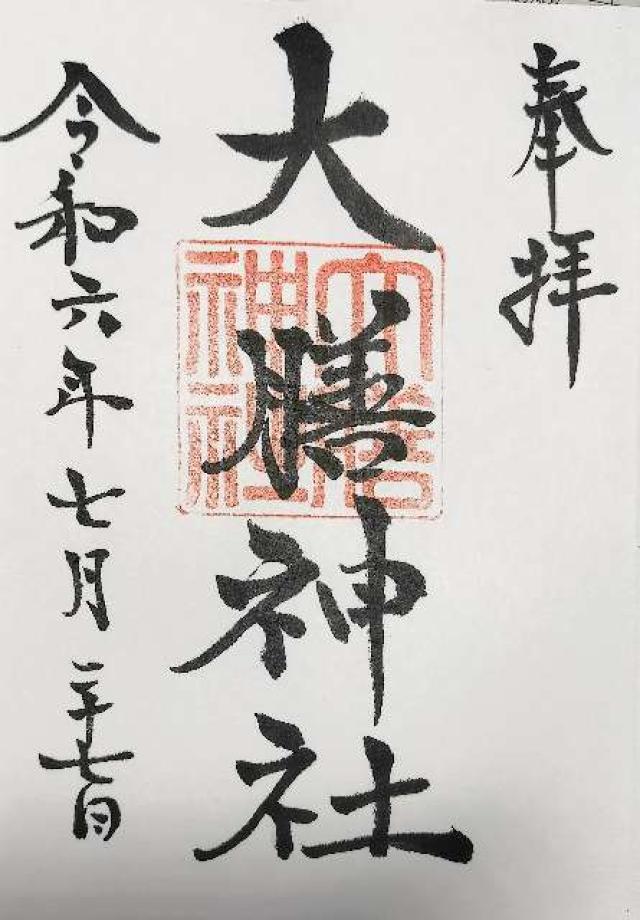 奉拝
大膳神社
大膳神社
令和六年七月二十七日